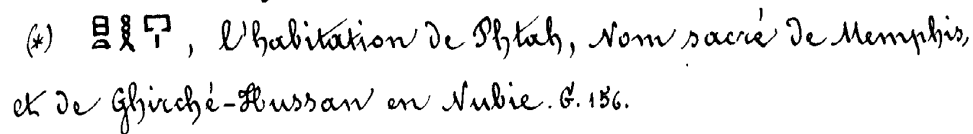 (*) 𓊪𓏏𓎛𓉐, l'habitation de Phtah, Nom sacré de Memphis,
et de Ghirché-Hussan en Nubie. G. 156.